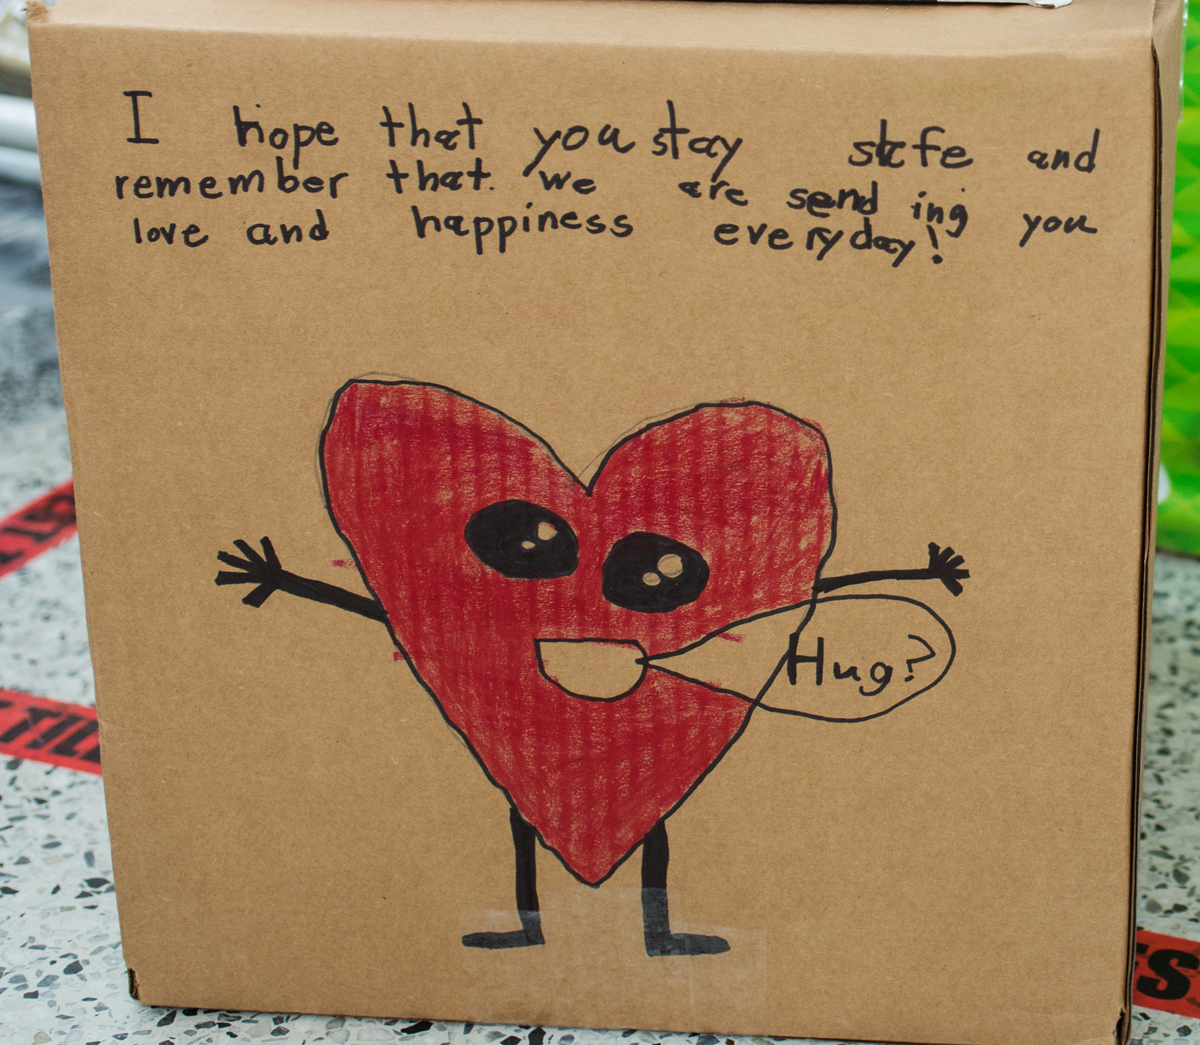 I hope that you stay safe and
remember that we are sending you
love and happiness everyday!
Hug?